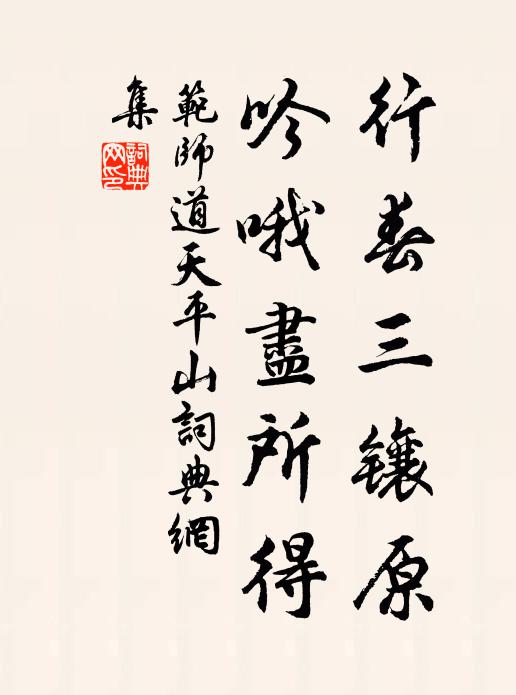 行春三鑲原
吟哦盡所得
範師道天平山詞典網
集
詞典網印